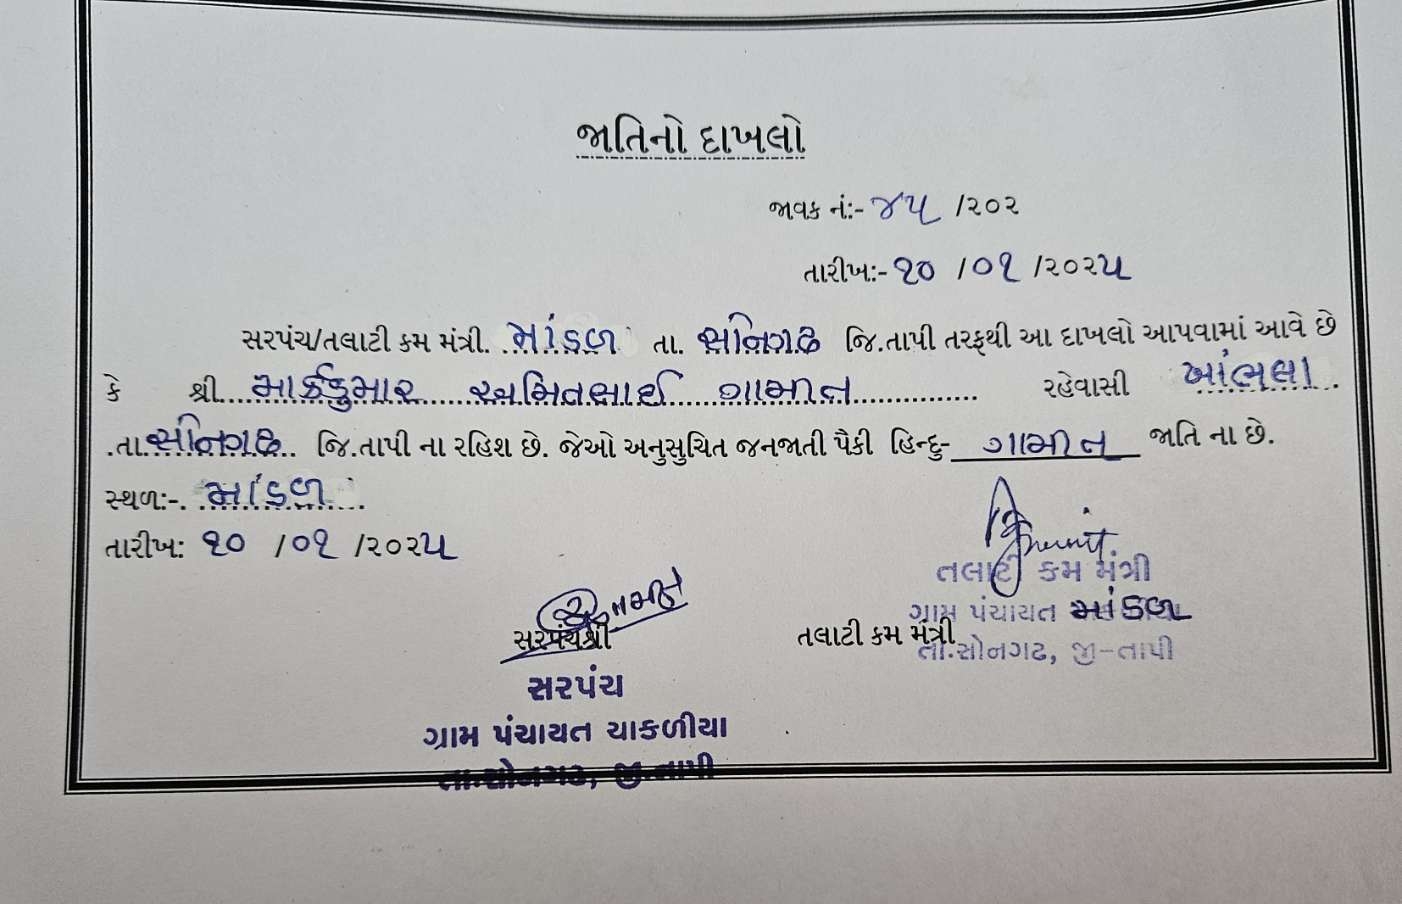 જાતિનો દાખલો
જાવક નં:- ૪૫ /૨૦૨
તારીખ:- ૧૦ /૦૧ /૨૦૨૫
સરપંચ/તલાટી કમ મંત્રી. માંડળ તા. સોનગઢ જિ.તાપી તરફથી આ દાખલો આપવામાં આવે છે
કે શ્રી માર્કકુમાર અમિતભાઈ ગામીત રહેવાસી ખાંભલા
તા. સોનગઢ જિ.તાપી ના રહિશ છે. જેઓ અનુસુચિત જનજાતી પૈકી હિન્દુ- ગામીત જાતિ ના છે.
સ્થળ:- માંડળ
તારીખ: ૧૦ /૦૧ /૨૦૨૫
તલાટી કમ મંત્રી
ગ્રામ પંચાયત માંડળ
સરપંચશ્રી તલાટી કમ મંત્રી
તા.સોનગઢ, જી-તાપી
સરપંચ
ગ્રામ પંચાયત ચાકળીયા
તા.સોનગઢ, જી.તાપી